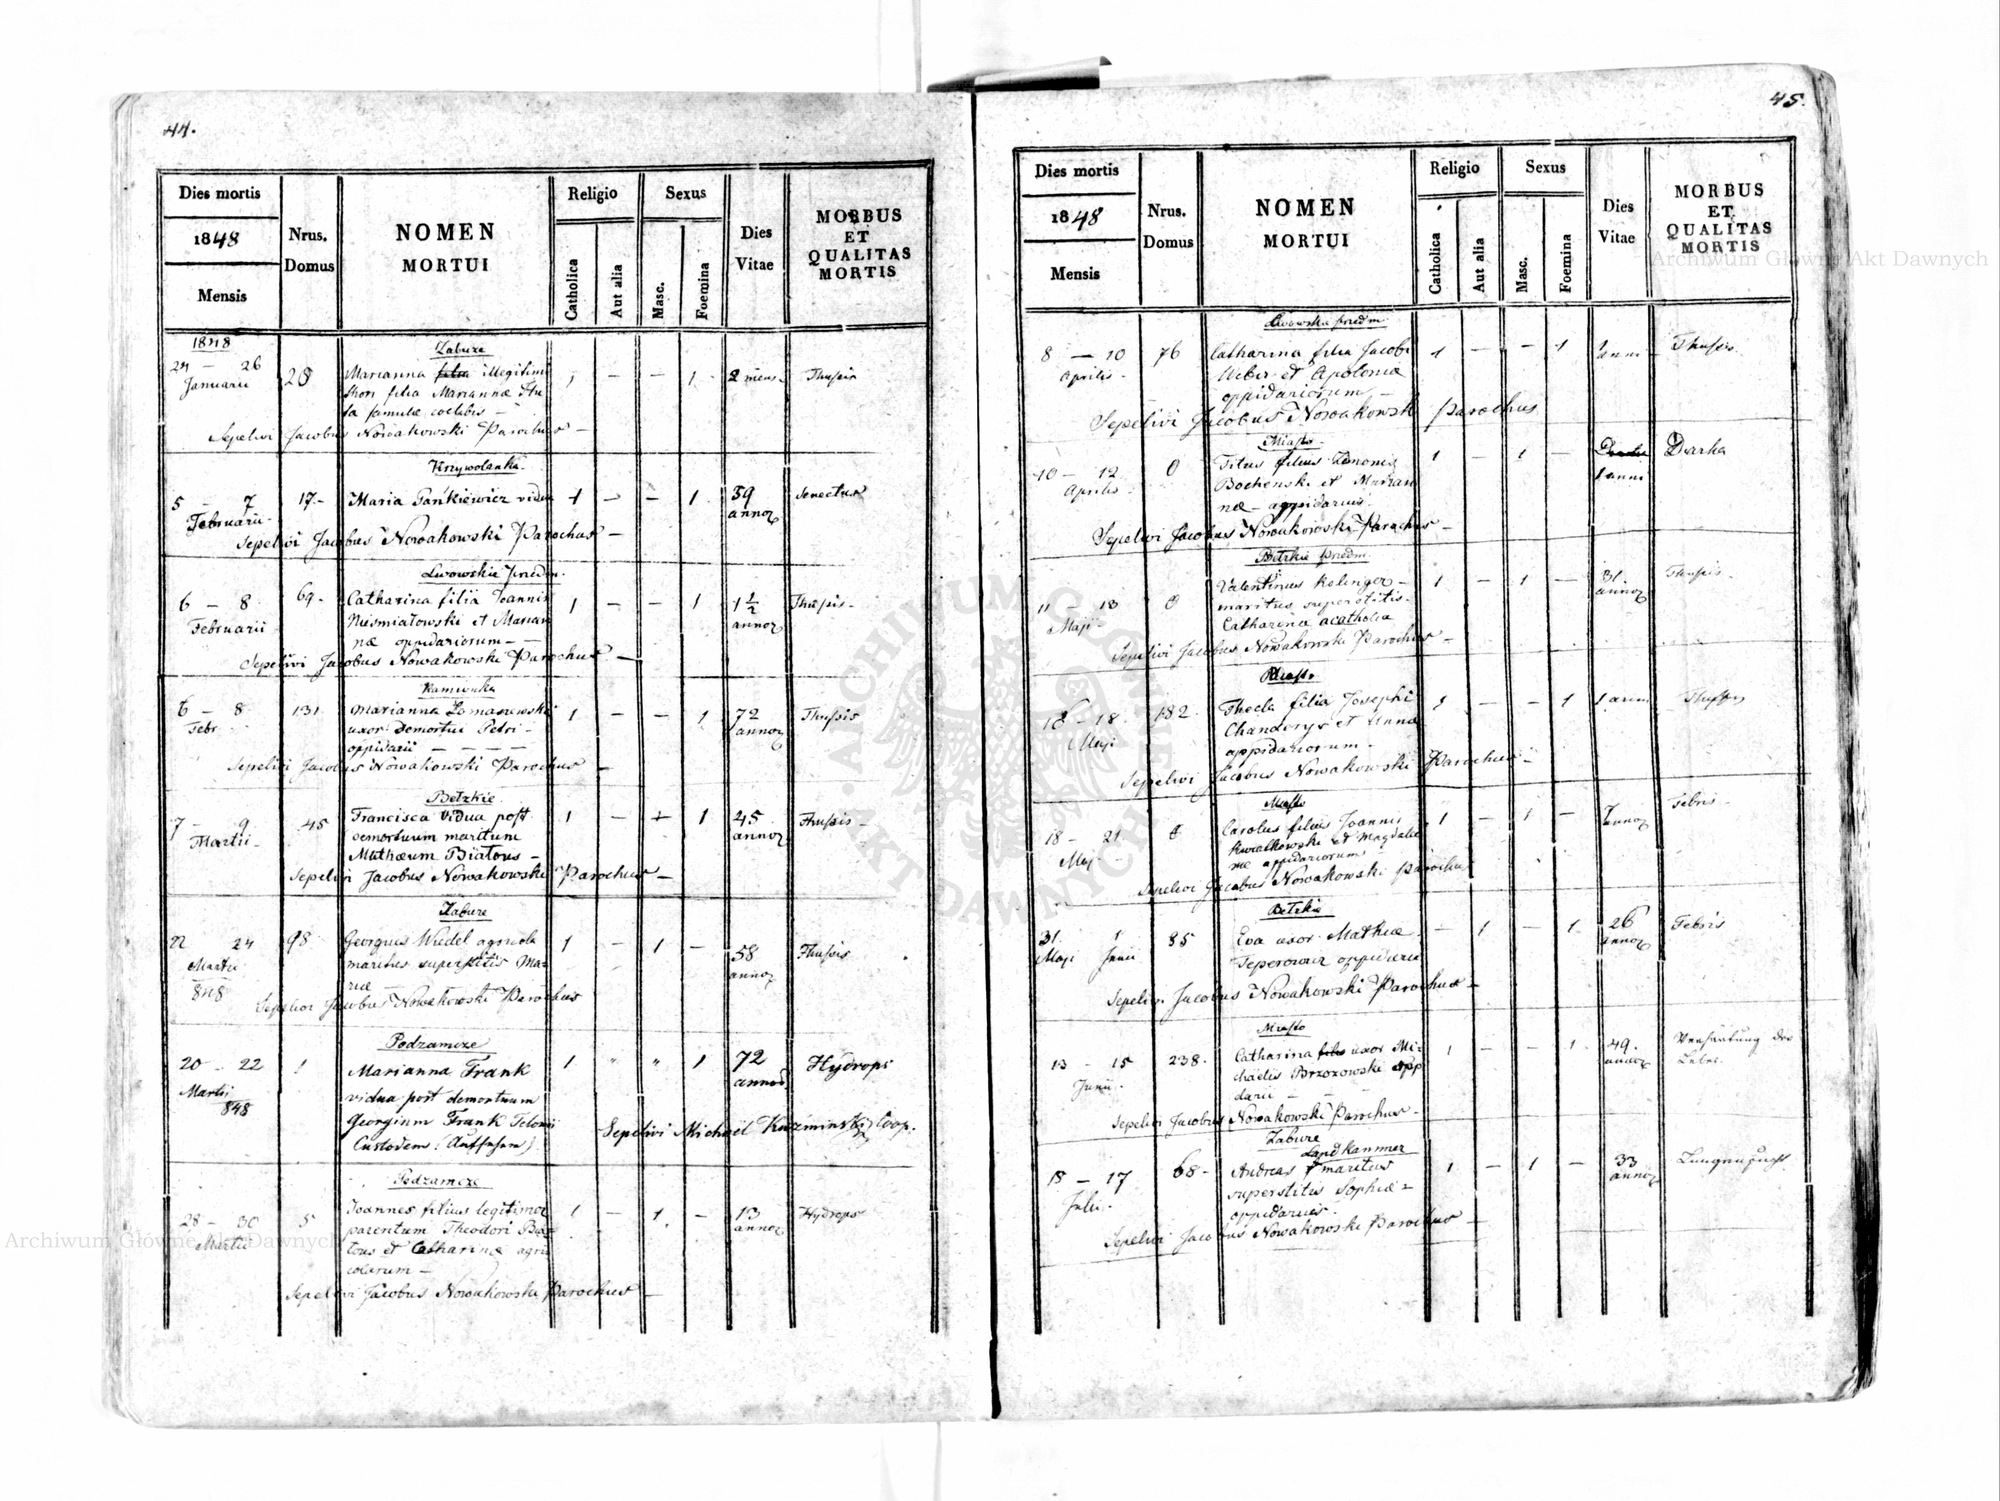 44.
Dies mortis
1848
Mensis
Nrus.
Domus
NOMEN
MORTUI
Religio
Catholica
Aut alia
Sexus
Masc.
Foemina
Dies
Vitae
MORBUS
ET
QUALITAS
MORTIS
1848
Zabuże
24 — 26 28 Marianna illegitimi 1 — — 1 2 mens. Thussis
Januarii thori filia Mariannæ
famulæ coelebis —
Sepelivi Jacobus Nowakowski Parochus —
Krzywolanka
5 — 7 17 — Maria Pańkiewicz vidua 1 — — 1 59 Senectus
Februarii annor
Sepelivi Jacobus Nowakowski Parochus —
Lwowskie przedm.
6 — 8 69 — Catharina filia Joannis 1 — — 1 1½ Thussis —
Februarii Niesmiałowski et Marian annor
næ oppidariorum — —
Sepelivi Jacobus Nowakowski Parochus —
Kamionka
6 — 8 131 Marianna Romanowski 1 — — 1 72 Thussis
Febr. uxor demortui Petri — annor
oppidarii — — — —
Sepelivi Jacobus Nowakowski Parochus —
Bełzkie
7 — 9 45 Francisca vidua post 1 — — 1 45 Thussis —
Martii — demortuum maritum annor
Mathæum Białous —
Sepelivi Jacobus Nowakowski Parochus —
Zabuże
22 24 98 Georgius Wiedel agricola 1 — 1 — 58 Thussis
Martii maritus superstitis Ma= annor
848 riæ —
Sepelivi Jacobus Nowakowski Parochus
Podzamcze
20 — 22 1 Marianna Frank 1 " " 1 72 Hydrops
Martii vidua post demortuum annor
848 Georgium Frank Telonii
Custodem (Aufseher) Sepelivi Michaël Kuzminski Coop.
Podzamcze
28 — 30 5 Joannes filius legitimor 1 — 1 — 13 Hydrops
Martii parentum Theodori Biał annor
lous et Catharinæ agri
colarum —
Sepelivi Jacobus Nowakowski Parochus —
45.
Dies mortis
1848
Mensis
Nrus.
Domus
NOMEN
MORTUI
Religio
Catholica
Aut alia
Sexus
Masc.
Foemina
Dies
Vitae
MORBUS
ET
QUALITAS
MORTIS
Lwowskie przedm.
8 — 10 76 Catharina filia Jacobi 1 — — 1 1 anni — Thussis
Aprilis — Weber et Apoloniæ
oppidariorum —
Sepelivi Jacobus Nowakowski Parochus
Miasto
10 — 12 0 Titus filius Zenonis 1 — 1 — Diarha
Aprilis Bochenski et Marian 1 anni
næ — oppidarius
Sepelivi Jacobus Nowakowski Parochus —
Bełzkie przedm.
11 — 13 0 Valentinus Kelinger — 1 — 1 — 31 Thussis —
Maji — maritus superstitis — annor
Catharina acatholica
Sepelivi Jacobus Nowakowski Parochus —
Miasto
16 — 18 182 Thecla filia Josephi 1 — — 1 1 anni Thussis
Maji Chanderys et Anna
oppidariorum —
Sepelivi Jacobus Nowakowski Parochus —
Miasto
18 — 21 0 Carolus filius Joannis 1 — 1 — annor Febris —
Maj. Kwiatkowski et Magdale
næ oppidariorum
Sepelivi Jacobus Nowakowski Parochus
Bełzkie
31 1 85 Eva uxor Mathiæ — 1 — 1 26 Febris
Maji Junii Teperowicz oppidarii annor
Sepelivi Jacobus Nowakowski Parochus —
Miasto
13 — 15 238 — Catharina uxor Mi= 1 — — 1 49. Verhärtung der
Junii — chaelis Brzozowski opp annor Leber
darii — —
Sepelivi Jacobus Nowakowski Parochus —
Zabuże
Landkammer
15 — 17 68 — Andreas maritus 1 — 1 — 33 Lungensucht
Julii — superstitis Sophiæ — annor
oppidarius —
Sepelivi Jacobus Nowakowski Parochus —
Archiwum Główne Akt Dawnych
Archiwum Główne Akt Dawnych
ARCHIWUM GŁÓWNE AKT DAWNYCH